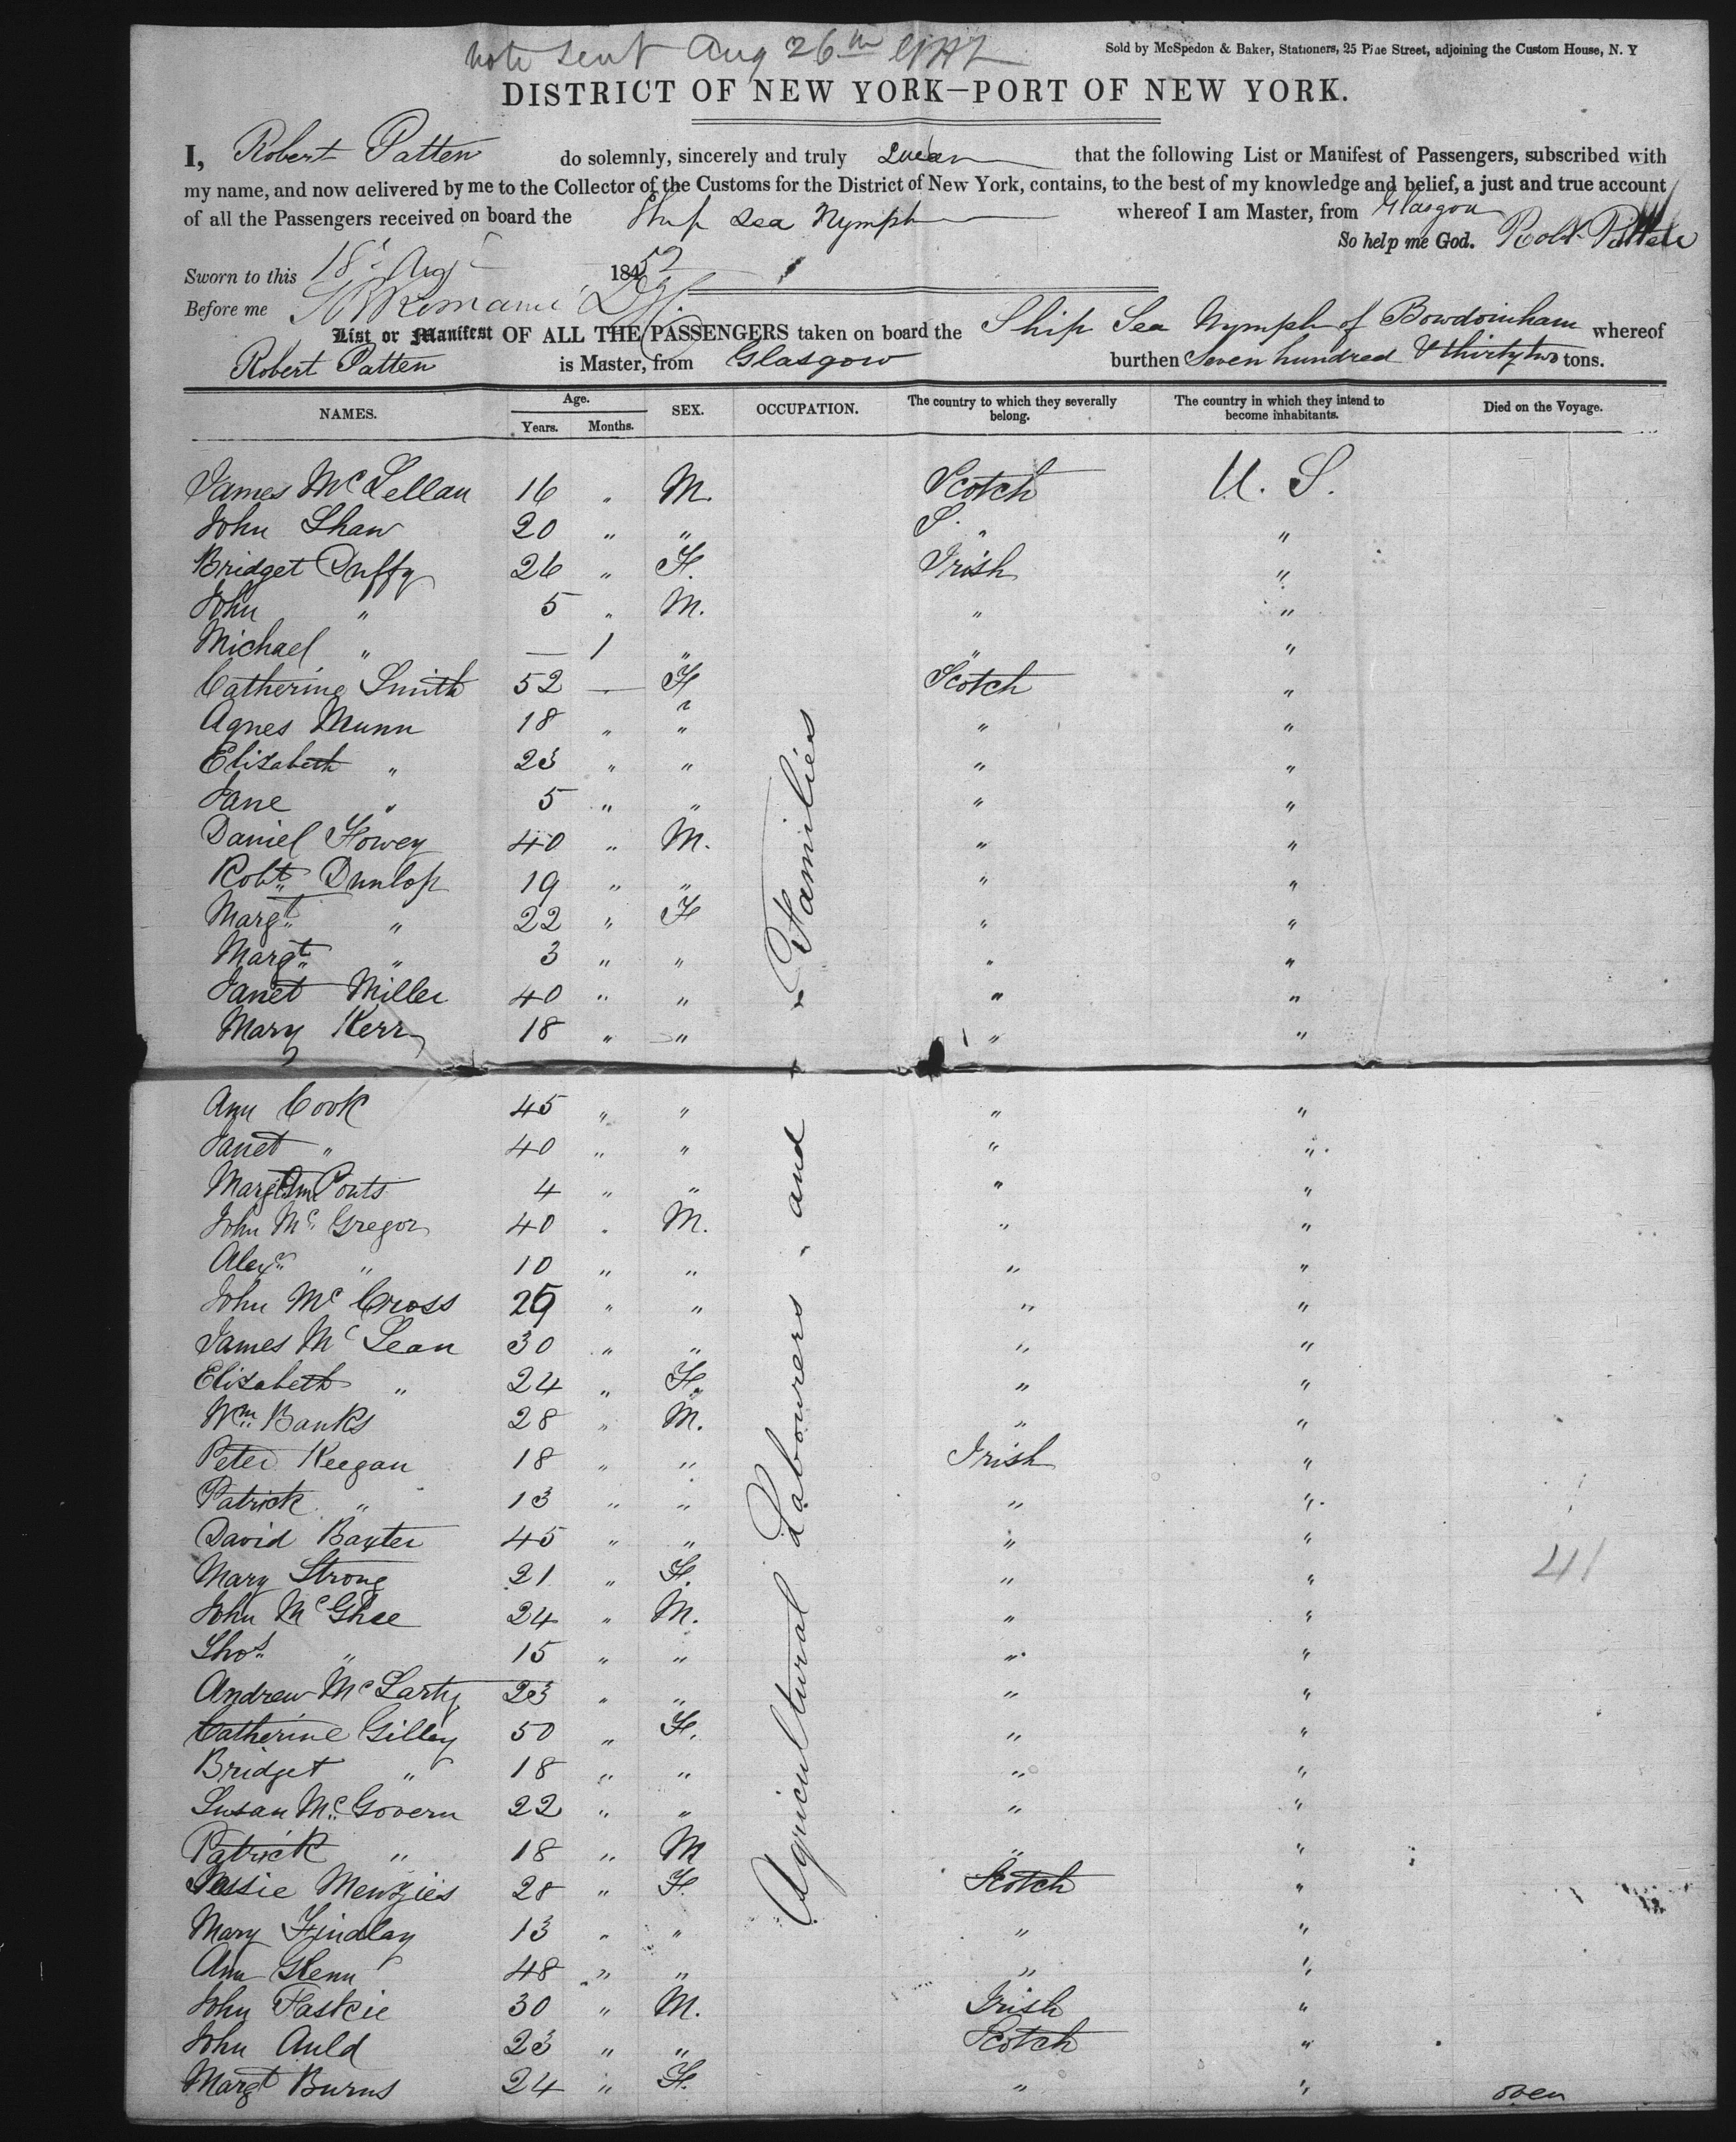 note sent Aug 26th
Sold by McSpedon & Baker, Stationers, 25 Pine Street, adjoining the Custom House, N. Y
DISTRICT OF NEW YORK—PORT OF NEW YORK.
I, Robert Patten do solemnly, sincerely and truly swear that the following List or Manifest of Passengers, subscribed with
my name, and now delivered by me to the Collector of the Customs for the District of New York, contains, to the best of my knowledge and belief, a just and true account
of all the Passengers received on board the Ship Sea Nymph whereof I am Master, from Glasgow
So help me God. Robt Patten
Sworn to this 18 Aug 1852
Before me
List or Manifest OF ALL THE PASSENGERS taken on board the Ship Sea Nymph of Bowdoinham whereof
Robert Patten is Master, from Glasgow burthen Seven hundred & thirty two tons.
NAMES. Age. Years. Months. SEX. OCCUPATION. The country to which they severally belong. The country in which they intend to become inhabitants. Died on the Voyage.
Agricultural Labourers - and - Families
James McLellan 16 " M. Scotch U. S.
John Shaw 20 " " S. " "
Bridget Duffy 26 " F. Irish "
John " 5 " M. " "
Michael " — 1 " " "
Catherine Smith 52 — F Scotch "
Agnes Munn 18 " " " "
Elizabeth " 23 " " " "
Jane " 5 " " " "
Daniel Howey 40 " M. " "
Robt Dunlop 19 " " " "
Margt " 22 " F " "
Margt " 3 " " " "
Janet Miller 40 " " " "
Mary Kerr 18 " " " "
Ann Cook 45 " " " "
Janet " 40 " " " "
Margt Pouts 4 " " " "
John McGregor 40 " M. " "
Alexr " 10 " " " "
John McCross 29 " " " "
James McLean 30 " " " "
Elizabeth " 24 " F. " "
Wm Banks 28 " M. " "
Peter Keegan 18 " " Irish "
Patrick " 13 " " " "
David Baxter 45 " " " "
Mary Strong 21 " F. " " 41
John McGhee 24 " M. " "
Thos " 15 " " " "
Andrew McLarty 23 " " " "
Catherine Gilley 50 " F. " "
Bridget " 18 " " " "
Susan McGovern 22 " " " "
Patrick " 18 " M " "
Jessie Menzies 28 " F. Scotch "
Mary Findlay 13 " " " "
Ann Glenn 48 " " " "
John Faskie 30 " M. Irish "
John Auld 23 " " Scotch "
Margt Burns 24 " F. " "
over